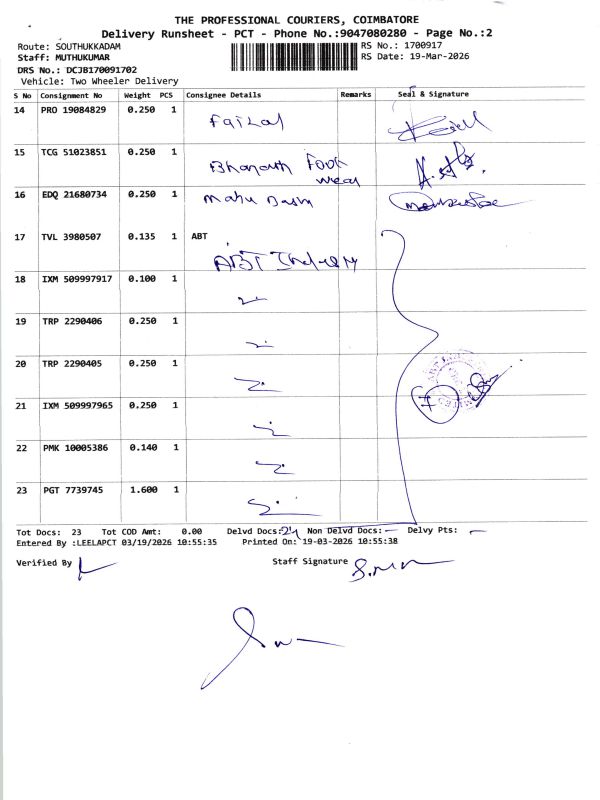 THE PROFESSIONAL COURIERS, COIMBATORE
Delivery Runsheet - PCT - Phone No.:9047080280 - Page No.:2
Route: SOUTHUKKADAM RS No.: 1700917
Staff: MUTHUKUMAR RS Date: 19-Mar-2026
DRS No.: DCJB170091702
Vehicle: Two Wheeler Delivery
S No Consignment No Weight PCS Consignee Details Remarks Seal & Signature
14 PRO 19084829 0.250 1
15 TCG 51023851 0.250 1 Foot
wear
16 EDQ 21680734 0.250 1
17 TVL 3980507 0.135 1 ABT
ABT
18 IXM 509997917 0.100 1
19 TRP 2290406 0.250 1
20 TRP 2290405 0.250 1
21 IXM 509997965 0.250 1
22 PMK 10005386 0.140 1
23 PGT 7739745 1.600 1
Tot Docs: 23 Tot COD Amt: 0.00 Delvd Docs: Non Delvd Docs: — Delvy Pts: —
Entered By :LEELAPCT 03/19/2026 10:55:35 Printed On: 19-03-2026 10:55:38
Verified By Staff Signature